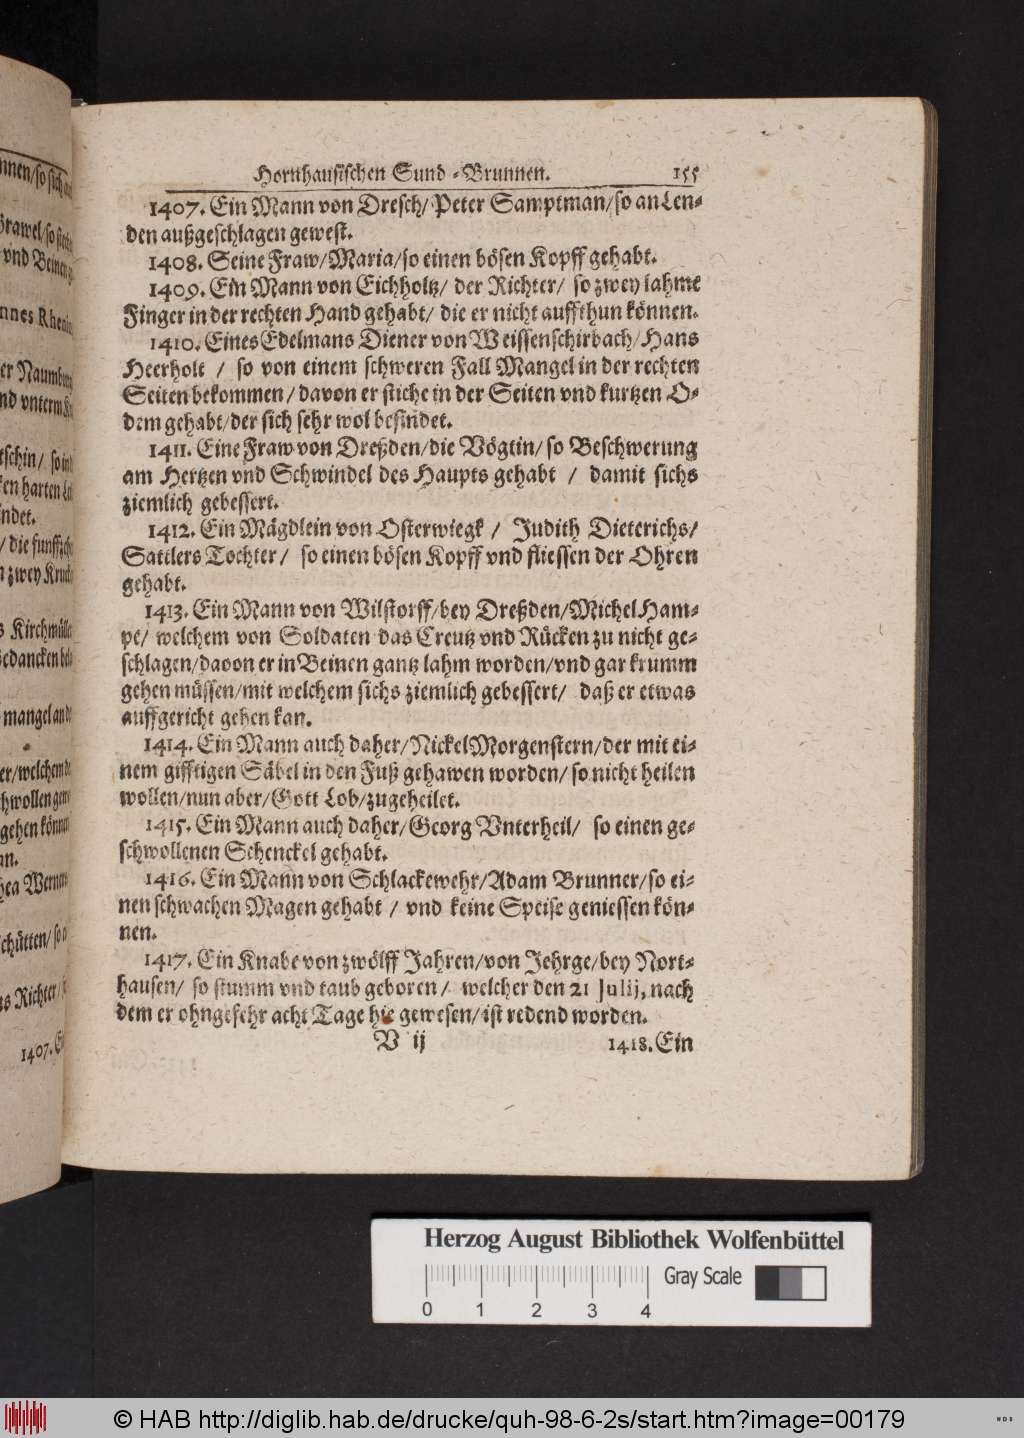 Hornhausischen Gund-Brunnen. 155
1407. Ein Mann von Dresch/ Peter Samptman/ so an Len-
den außgeschlagen gewest.
1408. Seine Fraw/ Maria/ so einen bösen Kopff gehabt.
1409. Ein Mann von Eichholtz/ der Richter/ so zwey lahme
Finger in der rechten Hand gehabt/ die er nicht auffthun können.
1410. Eines Edelmans Diener von Weissenschirbach/ Hans
Heerholt / so von einem schweren Fall Mangel in der rechten
Seiten bekommen/ davon er stiche in der Seiten vnd kurtzen O-
dem gehabt/ der sich sehr wol befindet.
1411. Eine Fraw von Dreßden/ die Vögtin/ so Beschwerung
am Hertzen vnd Schwindel des Haupts gehabt / damit sichs
ziemlich gebessert.
1412. Ein Mägdlein von Osterwiegk / Judith Dieterichs/
Sattlers Tochter/ so einen bösen Kopff vnd fliessen der Ohren
gehabt.
1413. Ein Mann von Wilstorff/ bey Dreßden/ Michel Ham-
pe/ welchem von Soldaten das Creutz vnd Rücken zu nicht ge-
schlagen/ davon er in Beinen gantz lahm worden/ vnd gar krumm
gehen müssen/ mit welchem sichs ziemlich gebessert/ daß er etwas
auffgericht gehen kan.
1414. Ein Mann auch daher/ Nickel Morgenstern/ der mit ei-
nem gifftigen Säbel in den Fuß gehawen worden/ so nicht heilen
wollen/ nun aber/ Gott Lob/ zugeheilet.
1415. Ein Mann auch daher/ Georg Vnterheil/ so einen ge-
schwollenen Schenckel gehabt.
1416. Ein Mann von Schlackewehr/ Adam Brunner/ so ei-
nen schwachen Magen gehabt / vnd keine Speise geniessen kön-
nen.
1417. Ein Knabe von zwölff Jahren/ von Jehrge/ bey Nort-
hausen/ so stumm vnd taub geboren / welcher den 21 Julij, nach
dem er ohngefehr acht Tage hie gewesen/ ist redend worden.
V ij 1418. Ein
Herzog August Bibliothek Wolfenbüttel
Gray Scale
0 1 2 3 4
© HAB http://diglib.hab.de/drucke/quh-98-6-2s/start.htm?image=00179